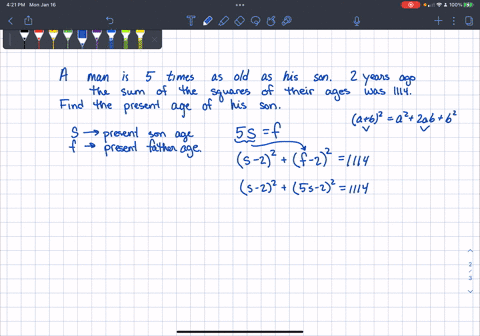 4:21 PM Mon Jan 16
100%
A man is 5 times as old as his son. 2 years ago
the sum of the squares of their ages was 1114.
Find the present age of his son.
(a+b)² = a²+2ab+b²
S → present son age
f → present father age.
5S = f
(s-2)² + (f-2)² = 1114
(s-2)² + (5s-2)² = 1114
2
3